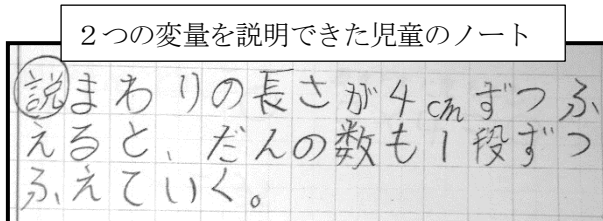 ２つの変量を説明できた児童のノート
説まわりの長さが4cmずつふ
えると、だんの数も1段ずつ
ふえていく。